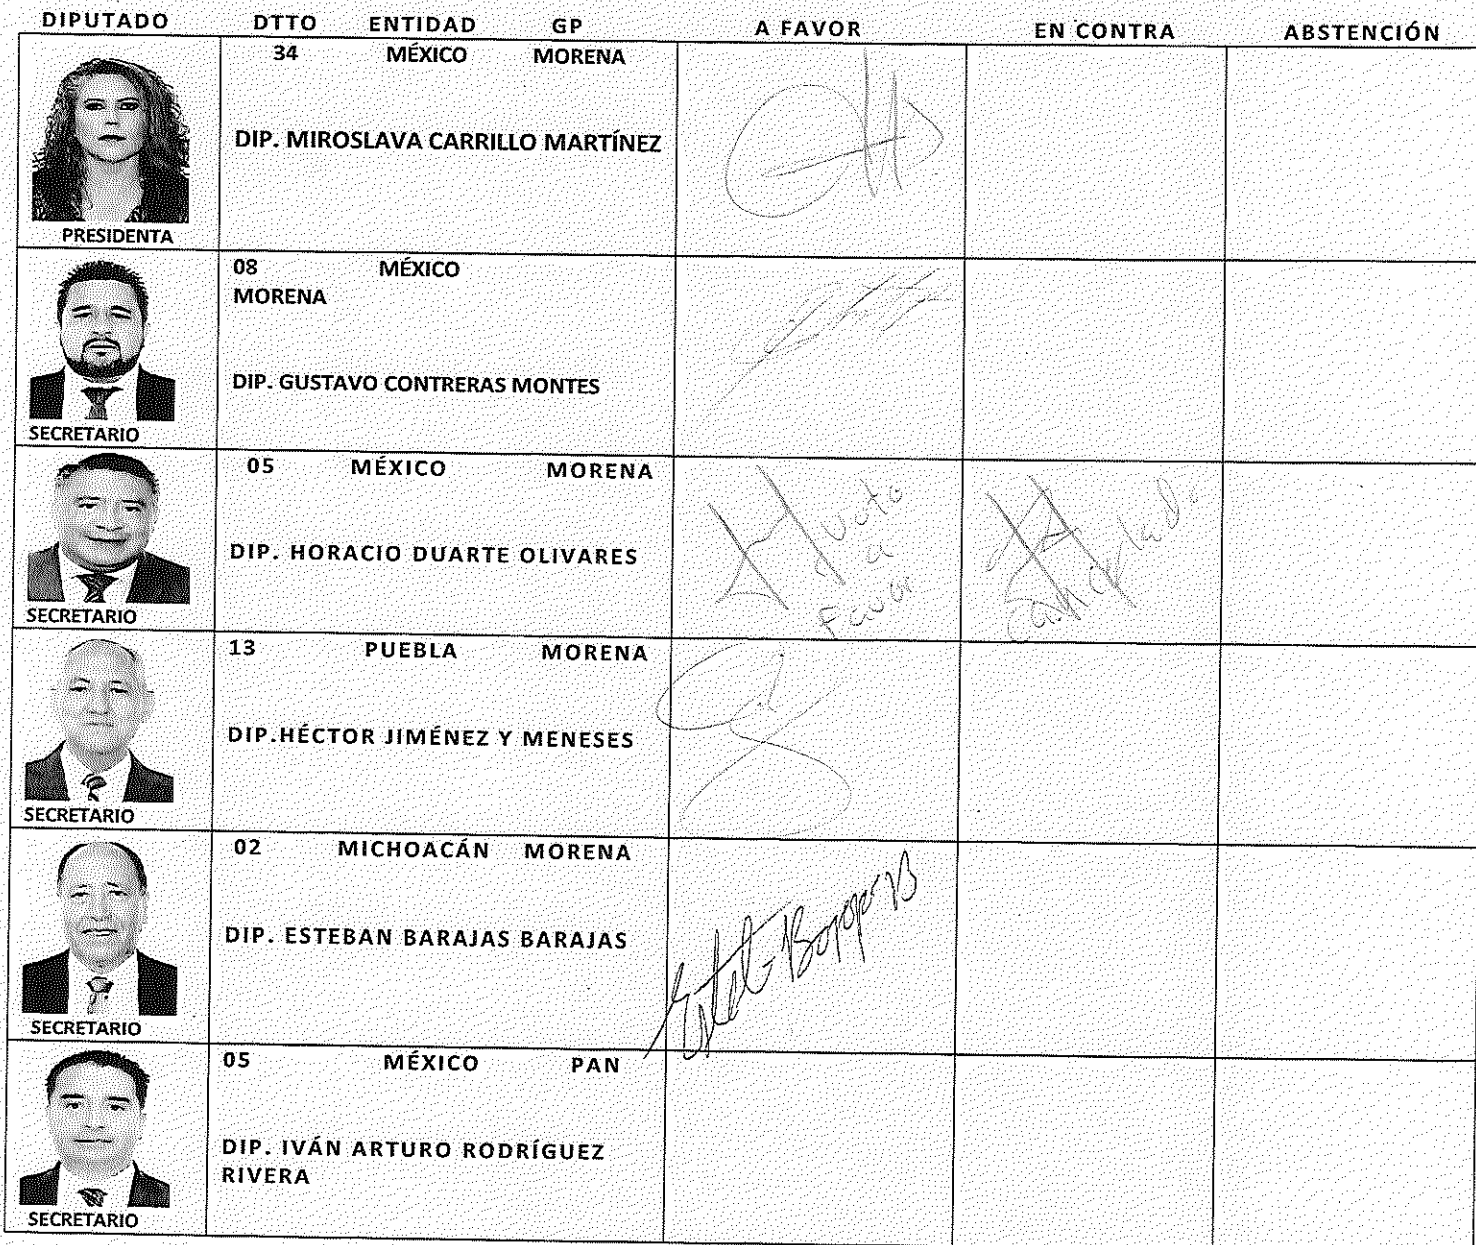 DIPUTADO DTTO ENTIDAD GP A FAVOR EN CONTRA ABSTENCIÓN
34 MÉXICO MORENA
DIP. MIROSLAVA CARRILLO MARTÍNEZ
PRESIDENTA
08 MÉXICO
MORENA
DIP. GUSTAVO CONTRERAS MONTES
SECRETARIO
05 MÉXICO MORENA
DIP. HORACIO DUARTE OLIVARES
Voto
a
Favor
Cancelado
SECRETARIO
13 PUEBLA MORENA
DIP.HÉCTOR JIMÉNEZ Y MENESES
SECRETARIO
02 MICHOACÁN MORENA
DIP. ESTEBAN BARAJAS BARAJAS
SECRETARIO
05 MÉXICO PAN
DIP. IVÁN ARTURO RODRÍGUEZ
RIVERA
SECRETARIO